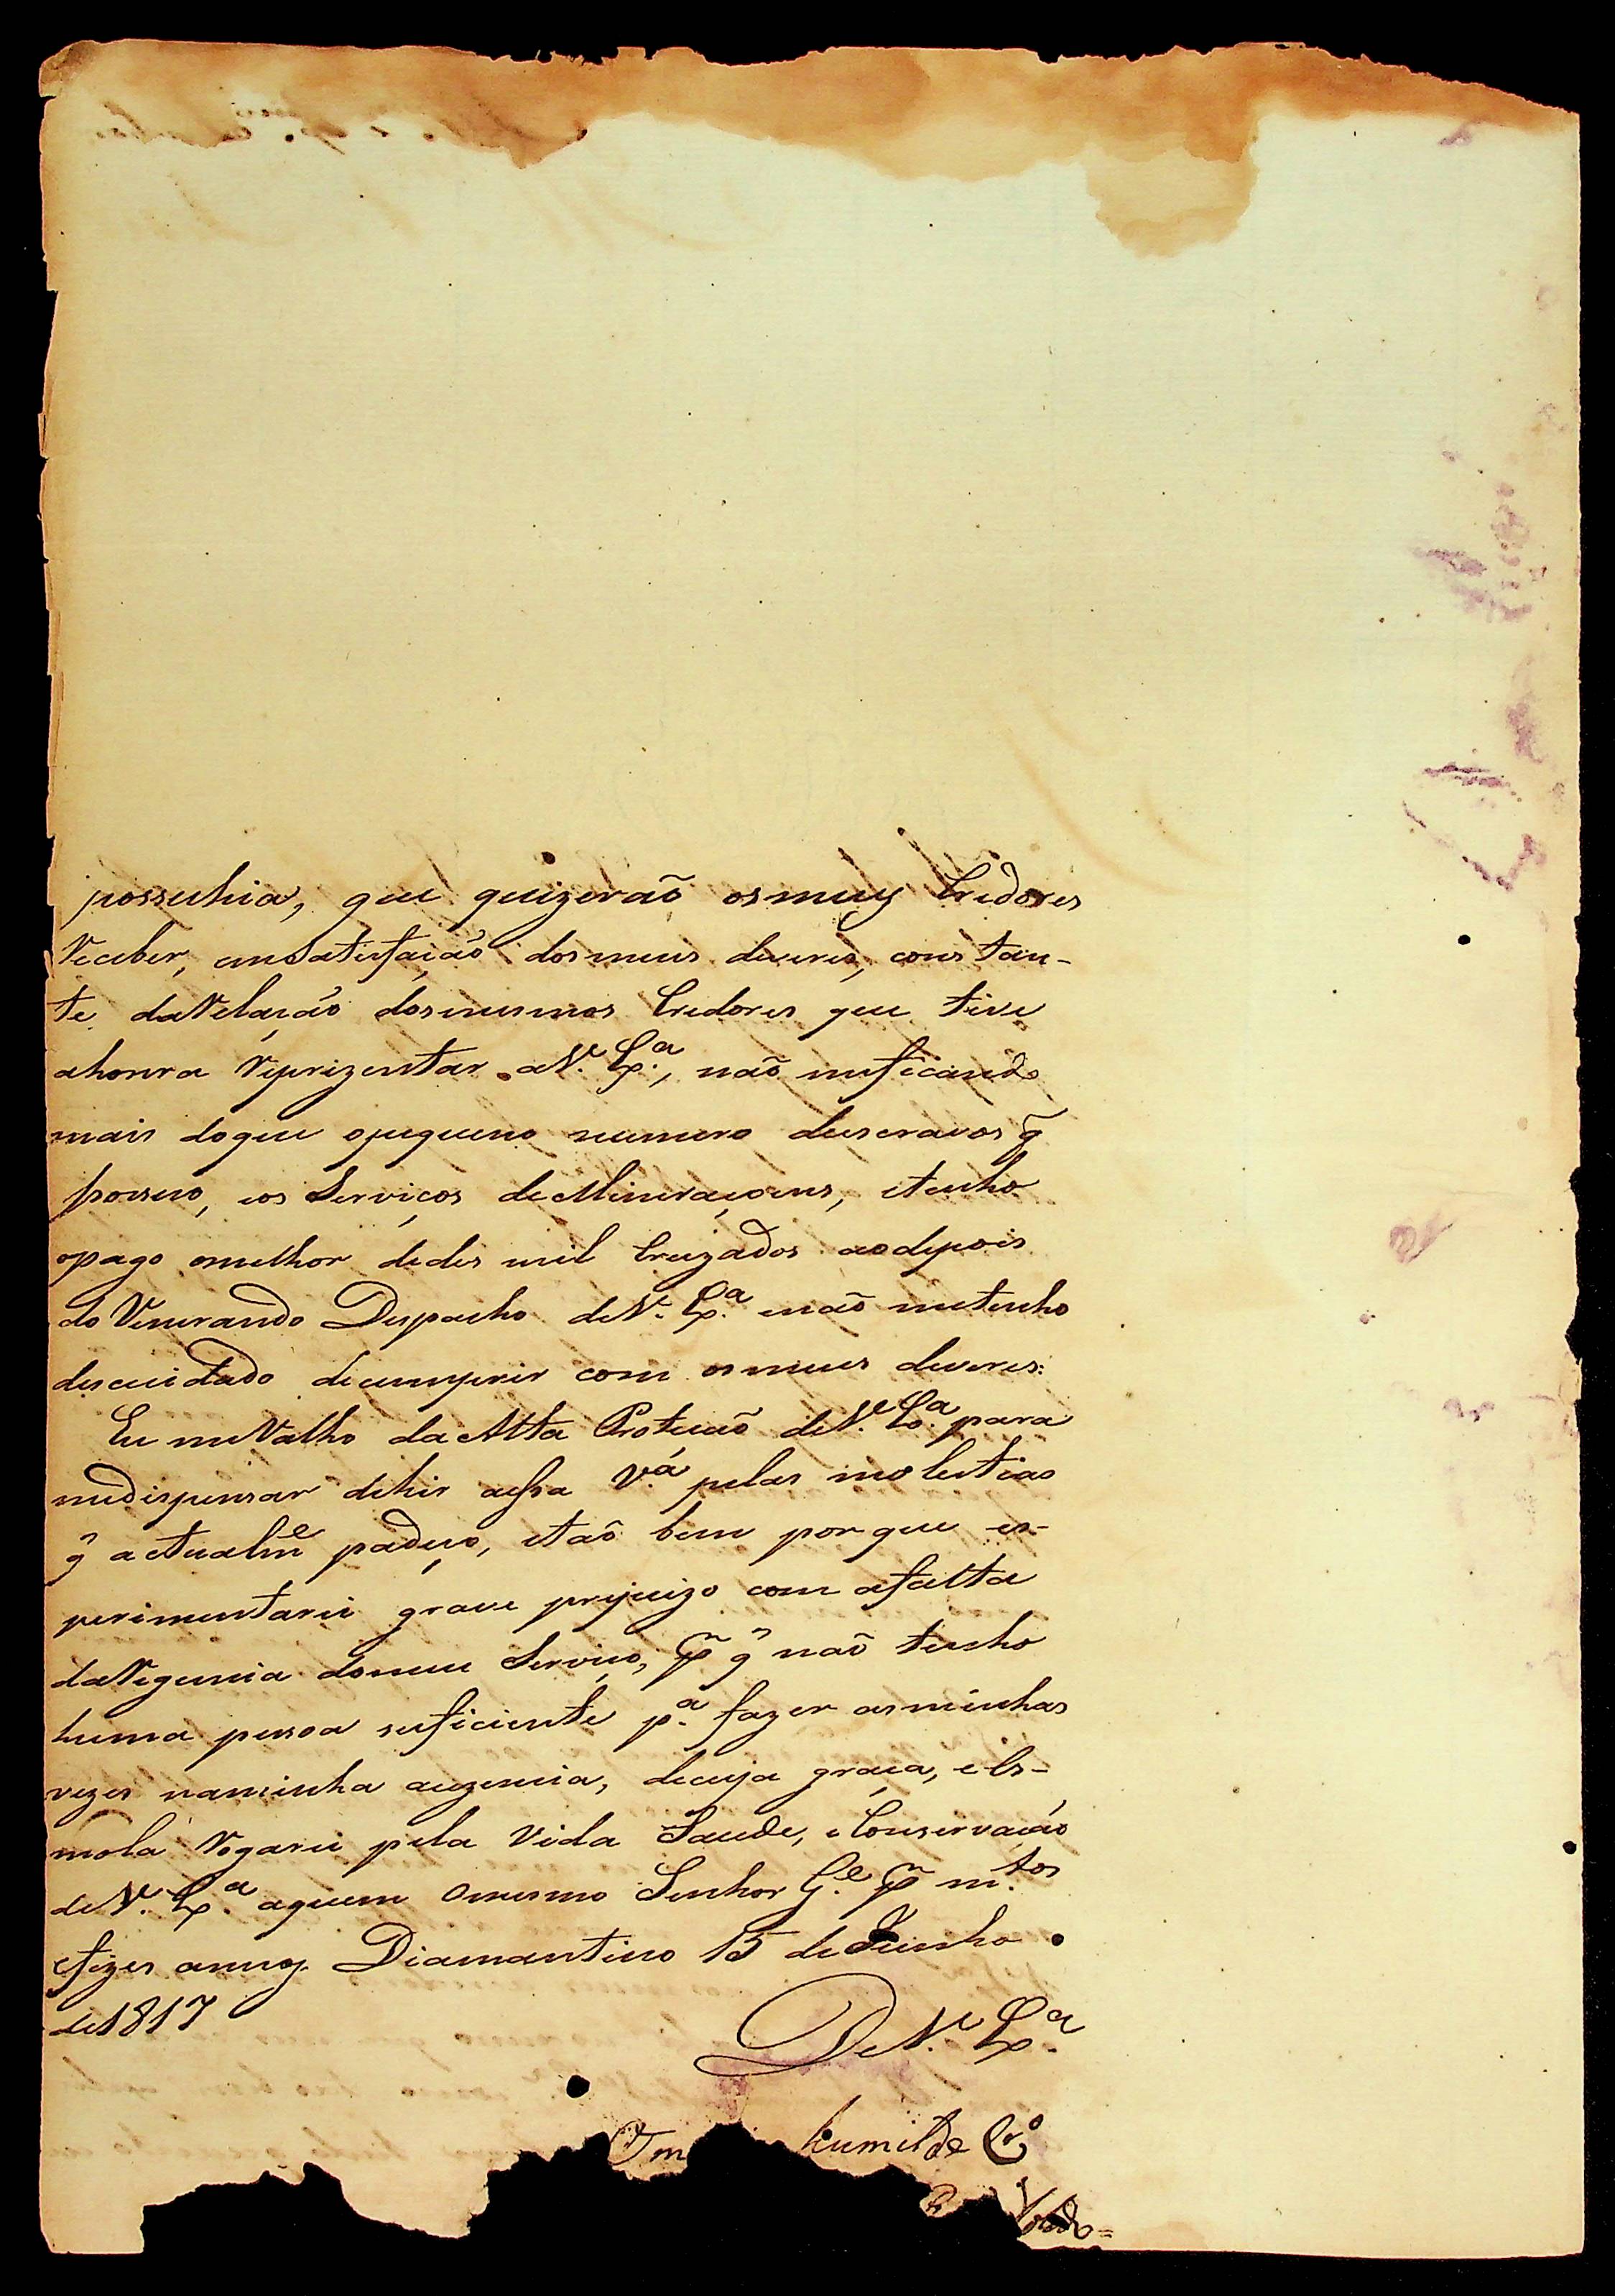 possuhia, que quizeraõ osmeus Credores
Receber, emSatisfaçaõ dosmeus deveres, constan-
te daRelaçaõ dosmesmos Credores que tive
ahonra Reprizentar aV. Ex.ª, naõ meficando
mais doque opequeno numero deescravos q̃
possuo, eos Serviços deMineraçoens, etenho
pago omelhor dedes mil Cruzados aodepois
do Venerando Despacho deV. Ex.ª enaõ metenho
descuidado decumprir com osmeus deveres:
Eu meValho daAlta Proteçaõ deV. Ex.ª para
medispensar dehir aessa V.ª pelas molestias
q̃ actualm.e padeço, etaõ bem porque es-
perimentarei grave prejuizo com afalta
daRegencia domeu Serviço, p.r q̃ naõ tenho
huma pessoa suficiente p.ª fazer asminhas
vezes naminha auzencia, decuja graça, eEs-
mola Rogarei pela Vida Saude, eConservaçaõ
deV. Ex.ª aquem Omesmo Senhor G.e p.r m.tos
efelizes annos. Diamantino 15 deJunho
de1817
DeV. Ex.ª
humilde Cr.º